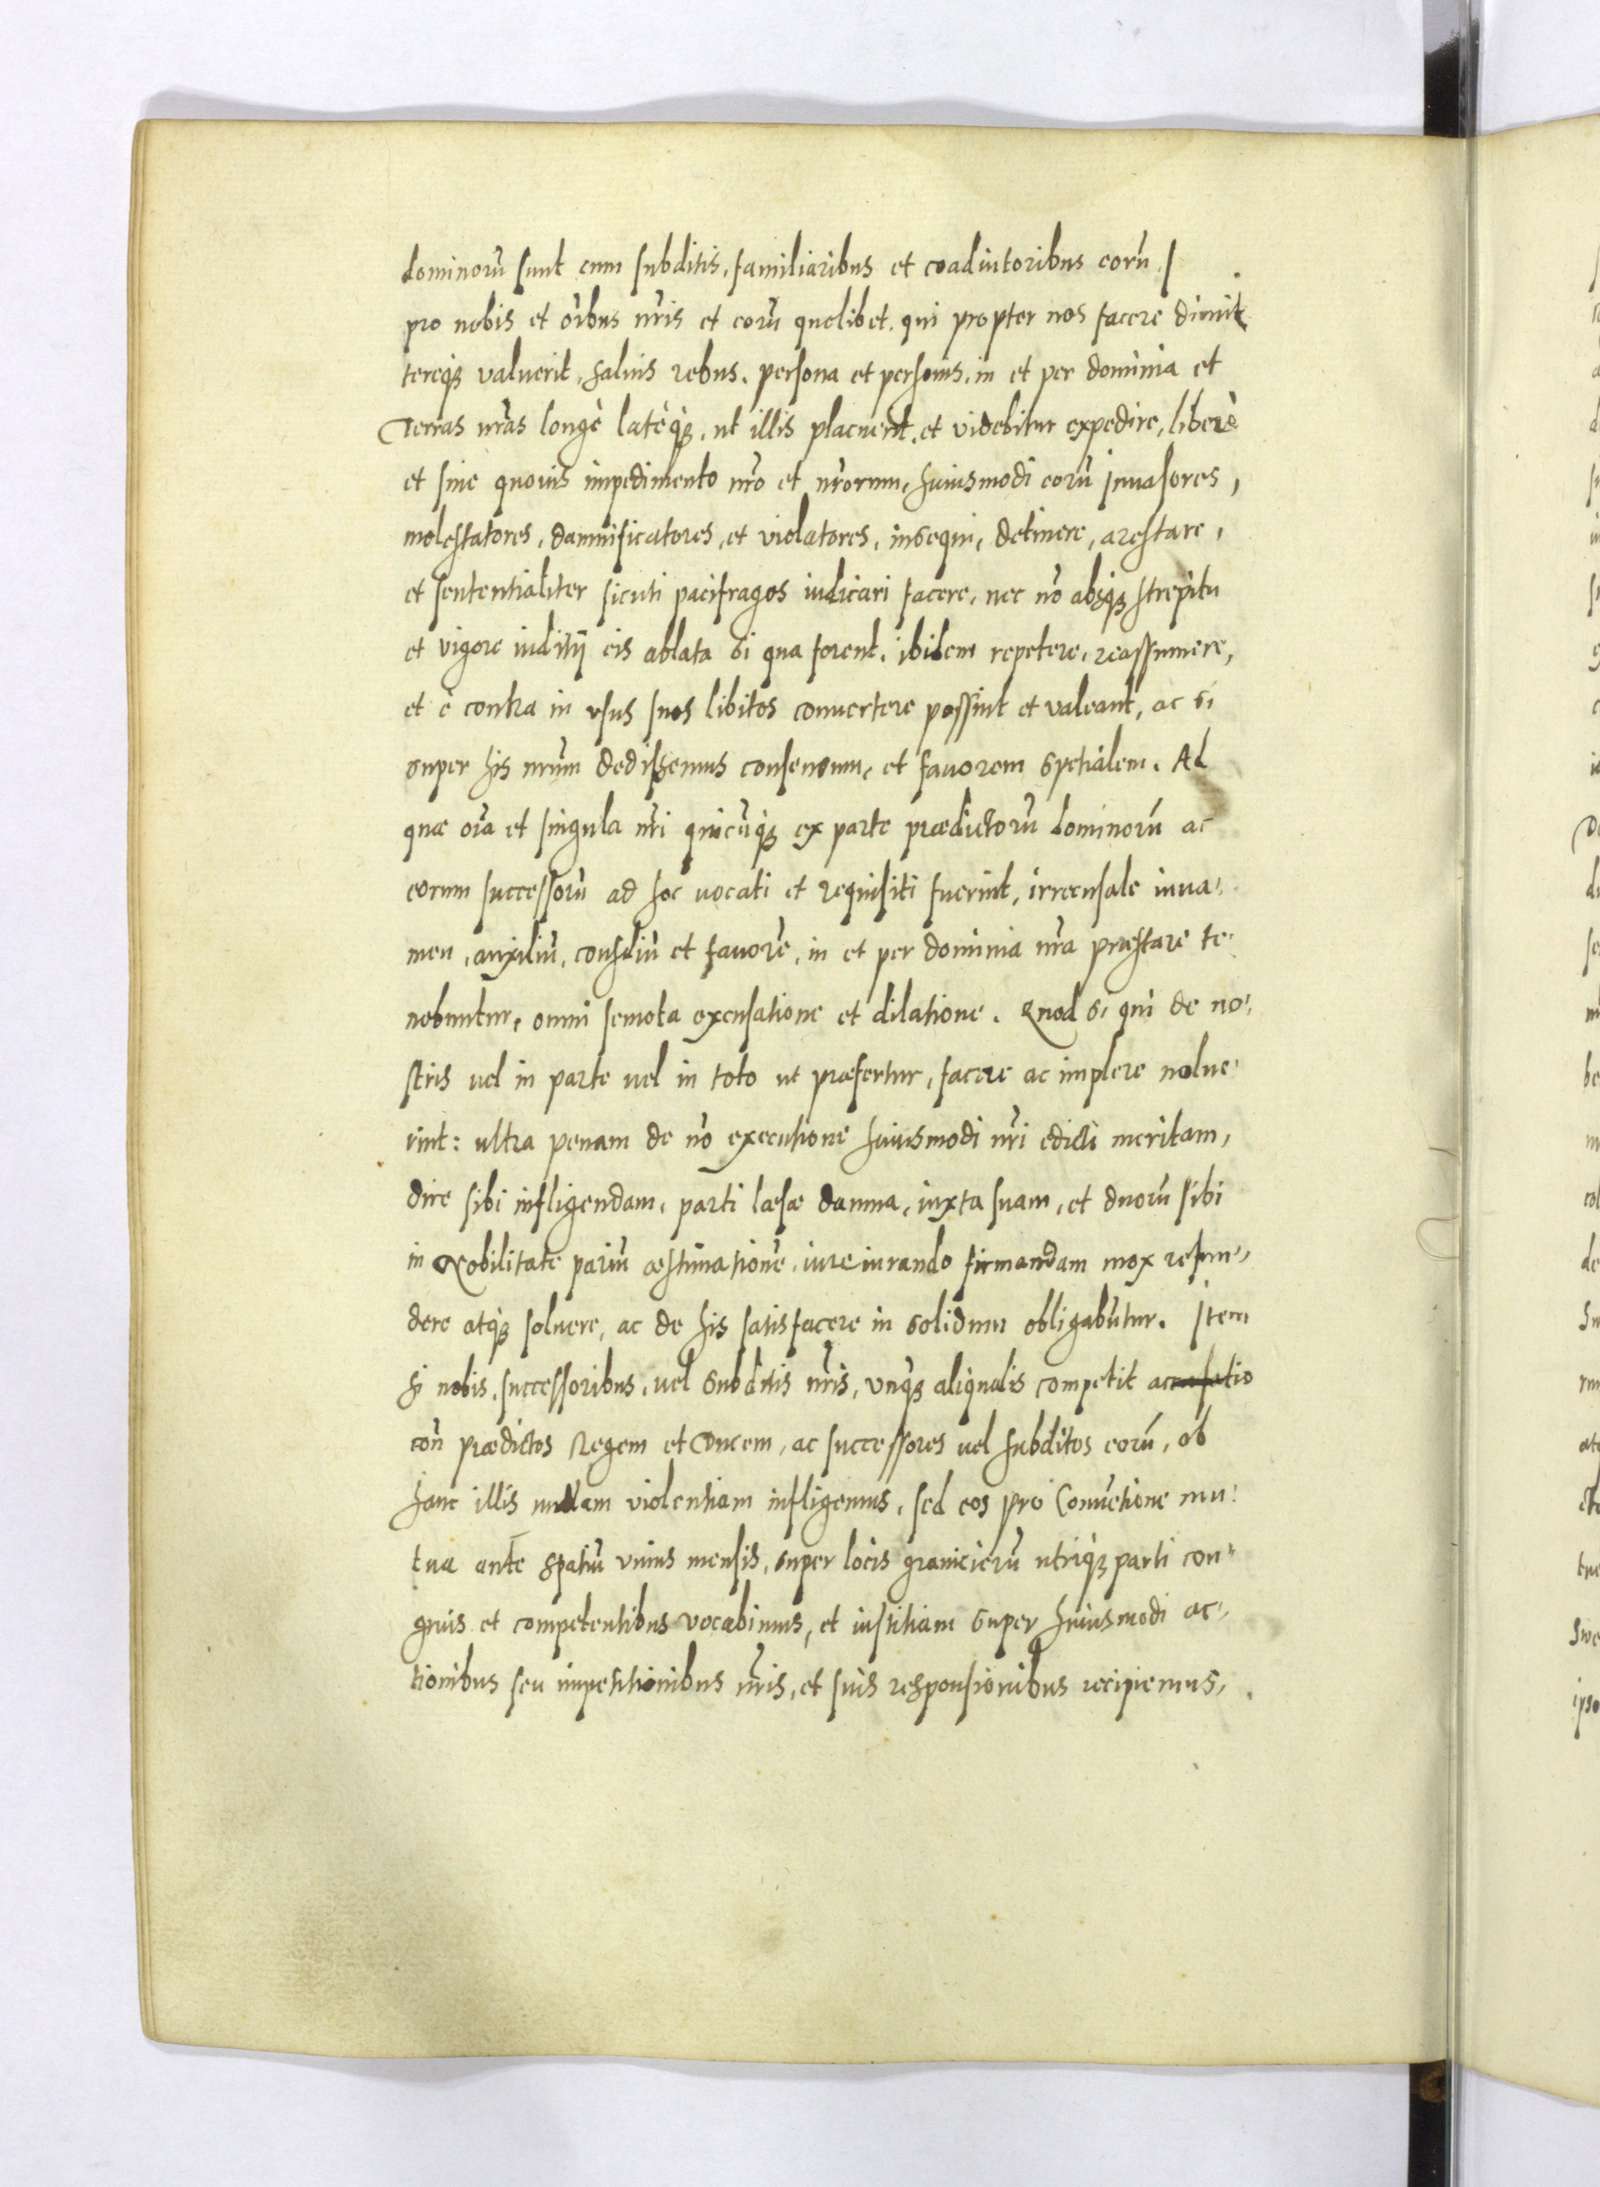 dominorũ sunt cum subditis, familiaribus et coadiutoribus eorũ,
pro nobis et oĩbus nr̃is et eorũ quolibet, qui propter nos facere dimit
tereq̃ valuerit, saluis rebus, persona et personis, in et per dominia et
Terras nr̃as longè latèq̃, ut illis placuerit, et videbitur expedire, liberè
et sine quouis impedimento nr̃o et nr̃orum, huiusmodi eorũ inuasores,
molestatores, damnificatores, et violatores, insequi, detinere, arestare,
et sententialiter sicuti pacifragos iudicari facere, nec nõ absq̃ strepitu
et vigore iuditij eis ablata si qua forent, ibidem repetere, reassumere,
et è contra in vsus suos libitos conuertere possint et valeant, ac si
super his nr̃um dedissemus consensum, et fauorem spetialem. Ad
quæ oĩa et singula nr̃i quicũq̃ ex parte prædictorũ dominorũ ac
eorum successorũ ad hoc uocati et requisiti fuerint, irrecusale iuua-
men, auxiliũ, consiliũ et fauorẽ, in et per dominia nr̃a præstare te-
nebuntur, omni semota excusatione et dilatione. Quod si qui de no-
stris uel in parte uel in toto ut præfertur, facere ac implere nolue-
rint: ultra penam de nõ executione huiusmodi nr̃i edicti meritam,
dire sibi infligendam, parti læsæ damna, iuxta suam, et duorũ sibi
in Nobilitate pariũ æstimationẽ, iureiurando firmandam mox refun-
dere atq̃ soluere, ac de his satisfacere in solidum obligabũtur. Item
si nobis, successoribus, uel subditis nr̃is, vnq̃ aliqualis competit accusatio
cõn prædictos Regem et Ducem, ac successores uel subditos eorũ, ob
hanc illis nullam violentiam infligemus, sed eos pro Conuẽtione mu-
tua ante spatiũ vnius mensis, super locis granicierũ utriq̃ parti con-
gruis et competentibus vocabimus, et iustitiam super huiusmodi ac-
tionibus seu impetitionibus nr̃is, et suis responsionibus recipiemus,